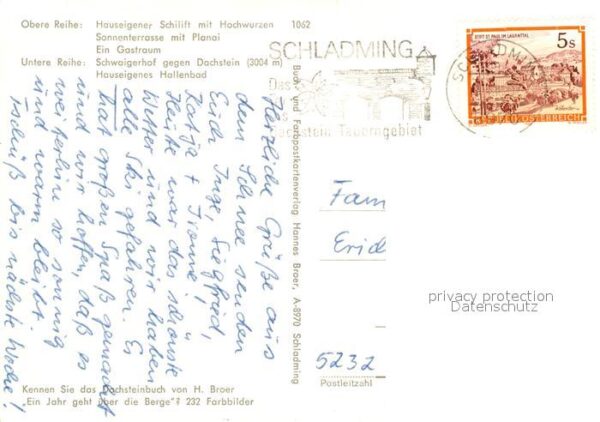 Obere Reihe: Hauseigener Schilift mit Hochwurzen 1062
Sonnenterrasse mit Planai
Ein Gastraum
Untere Reihe: Schwaigerhof gegen Dachstein (3004 m)
Hauseigenes Hallenbad
SCHLADMING
Das
Dachstein-Tauerngebiet
SCHLADMING
STIFT ST. PAUL IM LAVANTTAL
5S
REPUBLIK ÖSTERREICH
Herzliche Grüße aus
dem Schnee senden
Euch Inge, Siegfried,
Katja + Simone!
Heute war das schönste
Wetter und wir haben
alle Ski gefahren. Es
hat großen Spaß gemacht
und wir hoffen, daß es
weiterhin so sonnig
und warm bleibt.
Tschüß bis nächste Woche!
Buch- und Farbpostkartenverlag Hannes Broer, A-8970 Schladming
Fam
Erid
privacy protection
Datenschutz
5232
Postleitzahl
Kennen Sie das Dachsteinbuch von H. Broer
„Ein Jahr geht über die Berge"? 232 Farbbilder